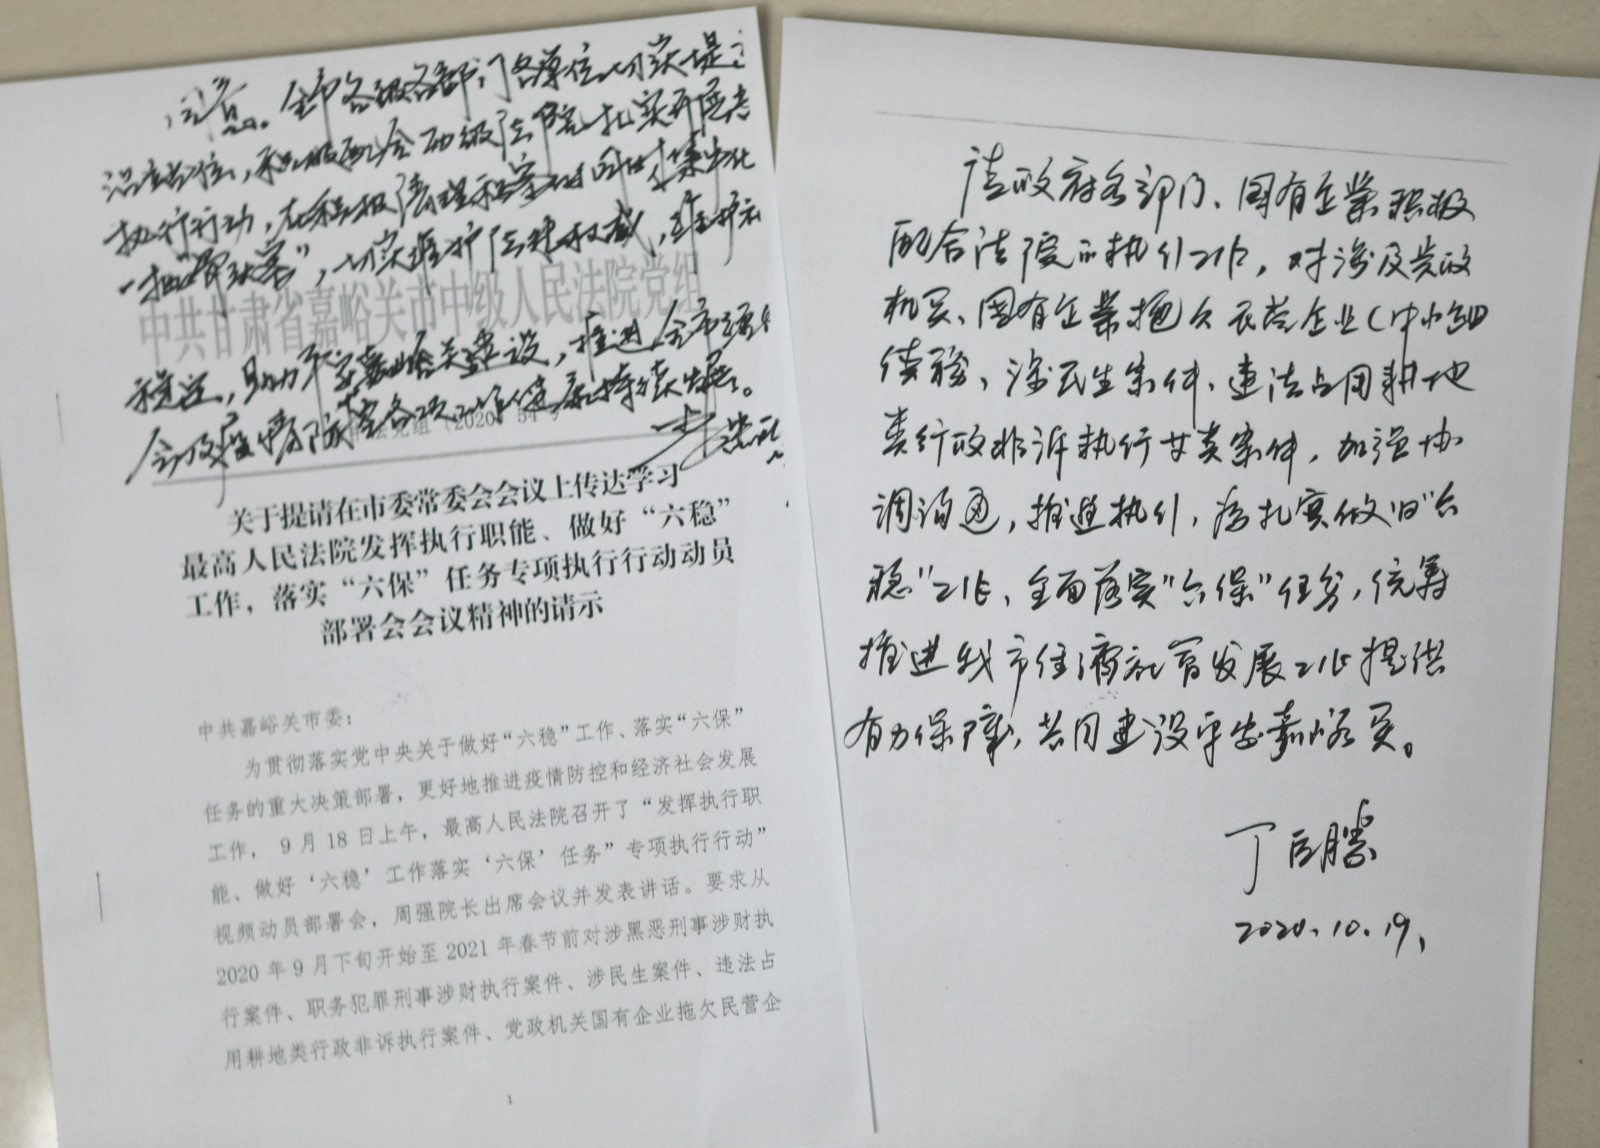 同意。全市各级各部门各单位切实提
政治站位，积极配合两级法院扎实开展专
执行行动，在积极清理积案的同时集中化
一批"骨头案"，切实维护法律权威，维护社
中共甘肃省嘉峪关市中级人民法院党组
稳定，助力平安嘉峪关建设，推进全市经
会及疫情防控各项工作健康持续发展。
党组〔2020〕54
关于提请在市委常委会会议上传达学习
最高人民法院发挥执行职能、做好“六稳”
工作，落实“六保”任务专项执行行动动员
部署会会议精神的请示
中共嘉峪关市委：
为贯彻落实党中央关于做好“六稳”工作、落实“六保”
任务的重大决策部署，更好地推进疫情防控和经济社会发展
工作，9月18日上午，最高人民法院召开了“发挥执行职
能、做好‘六稳’工作落实‘六保’任务”专项执行行动”
视频动员部署会，周强院长出席会议并发表讲话。要求从
2020年9月下旬开始至2021年春节前对涉黑恶刑事涉财执
行案件、职务犯罪刑事涉财执行案件、涉民生案件、违法占
用耕地类行政非诉执行案件、党政机关国有企业拖欠民营企
1
请政府各部门、国有企业积极
配合法院的执行工作，对涉及党政
机关、国有企业拖欠民营企业（中小企业）
债务、涉民生案件、违法占用耕地
类行政非诉执行等类案件，加强协
调沟通，推进执行，为扎实做好"六
稳"工作、全面落实"六保"任务，统筹
推进我市经济社会发展工作提供
有力保障，共同建设平安嘉峪关。
丁巨胜
2020.10.19.